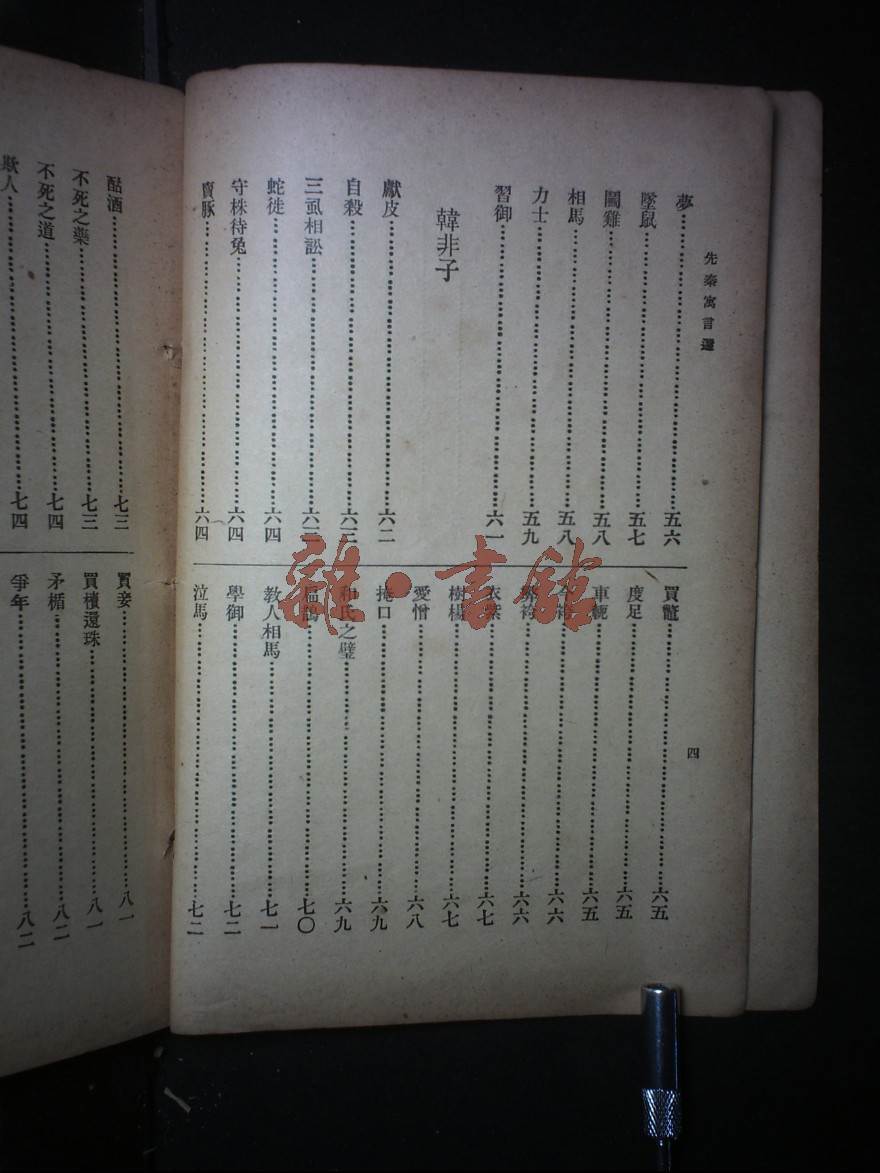 先秦寓言選
夢……五六
墜鼠……五七
鬭雞……五八
相馬……五八
力士……五九
習御……六一
韓非子
獻皮……六二
自殺……六三
三虱相訟……六三
蛇徙……六四
守株待兔……六四
賣豚……六四
買鼈……六五
度足……六五
車軛……六五
六六
袴……六六
衣紫……六七
樹楊……六七
愛憎……六八
掩口……六九
和氏之璧……六九
扁鵲……七〇
教人相馬……七一
學御……七二
泣馬……七二
四
酤酒……七三
不死之藥……七三
不死之道……七四
欺人……七四
買妾……八一
買櫝還珠……八一
矛楯……八二
爭年……八二
雜·書館